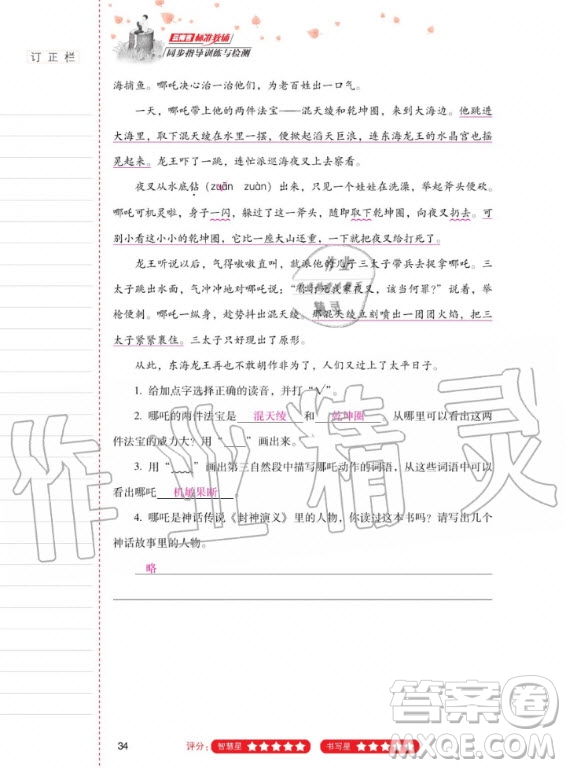 云南省标准教辅
同步指导训练与检测
订正栏
海捕鱼。哪吒决心治一治他们，为老百姓出一口气。
一天，哪吒带上他的两件法宝——混天绫和乾坤圈，来到大海边。他跳进
大海里，取下混天绫在水里一摆，便掀起滔天巨浪，连东海龙王的水晶宫也摇
晃起来。龙王吓了一跳，连忙派巡海夜叉上去察看。
夜叉从水底钻（zuān zuàn）出来，只见一个娃娃在洗澡，举起斧头便砍。
哪吒可机灵啦，身子一闪，躲过了这一斧头，随即取下乾坤圈，向夜叉扔去。可
别小看这小小的乾坤圈，它比一座大山还重，一下就把夜叉给打死了。
龙王听说以后，气得嗷嗷直叫，就派他的儿子三太子带兵去捉拿哪吒。三
太子跳出水面，气冲冲地对哪吒说：“你打死我家夜叉，该当何罪？”说着，举枪
便刺。哪吒一纵身，趁势抖出混天绫。那混天绫立刻喷出一团团火焰，把三
太子紧紧裹住。三太子只好现出了原形。
从此，东海龙王再也不敢胡作非为了，人们又过上了太平日子。
1. 给加点字选择正确的读音，并打“√”。
2. 哪吒的两件法宝是 混天绫 和 乾坤圈 从哪里可以看出这两
件法宝的威力大？用“——”画出来。
3. 用“﹏﹏”画出第三自然段中描写哪吒动作的词语，从这些词语中可以
看出哪吒 机敏果断 。
4. 哪吒是神话传说《封神演义》里的人物，你读过这本书吗？请写出几个
神话故事里的人物。
略
作业精灵
作业
精灵
34 评分：智慧星 ★★★★★ 书写星 ★★★★★
答案圈
MXQE.COM